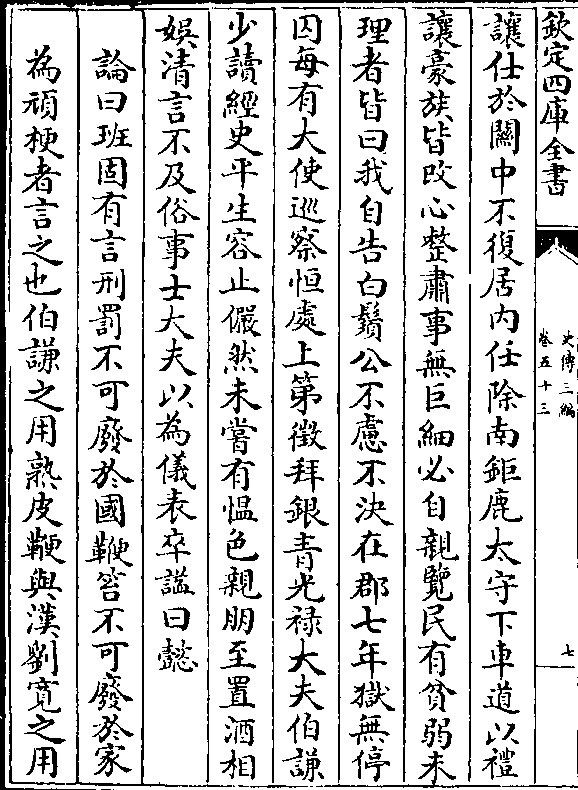 欽定四庫全書
史傳三編
卷五十三
七
讓仕於關中不復居内任除南鉅鹿太守下車道以禮
讓豪族皆改心整肅事無巨細必自親覽民有貧弱未
理者皆曰我自告白鬚公不慮不決在郡七年獄無停
囚每有大使巡察恒處上第徴拜銀青光禄大夫伯謙
少讀經史平生容止儼然未嘗有愠色親朋至置酒相
娯清言不及俗事士大夫以為儀表卒謚曰懿
論曰班固有言刑罰不可廢於國鞭笞不可廢於家
為頑梗者言之也伯謙之用熟皮鞭與漢劉寛之用